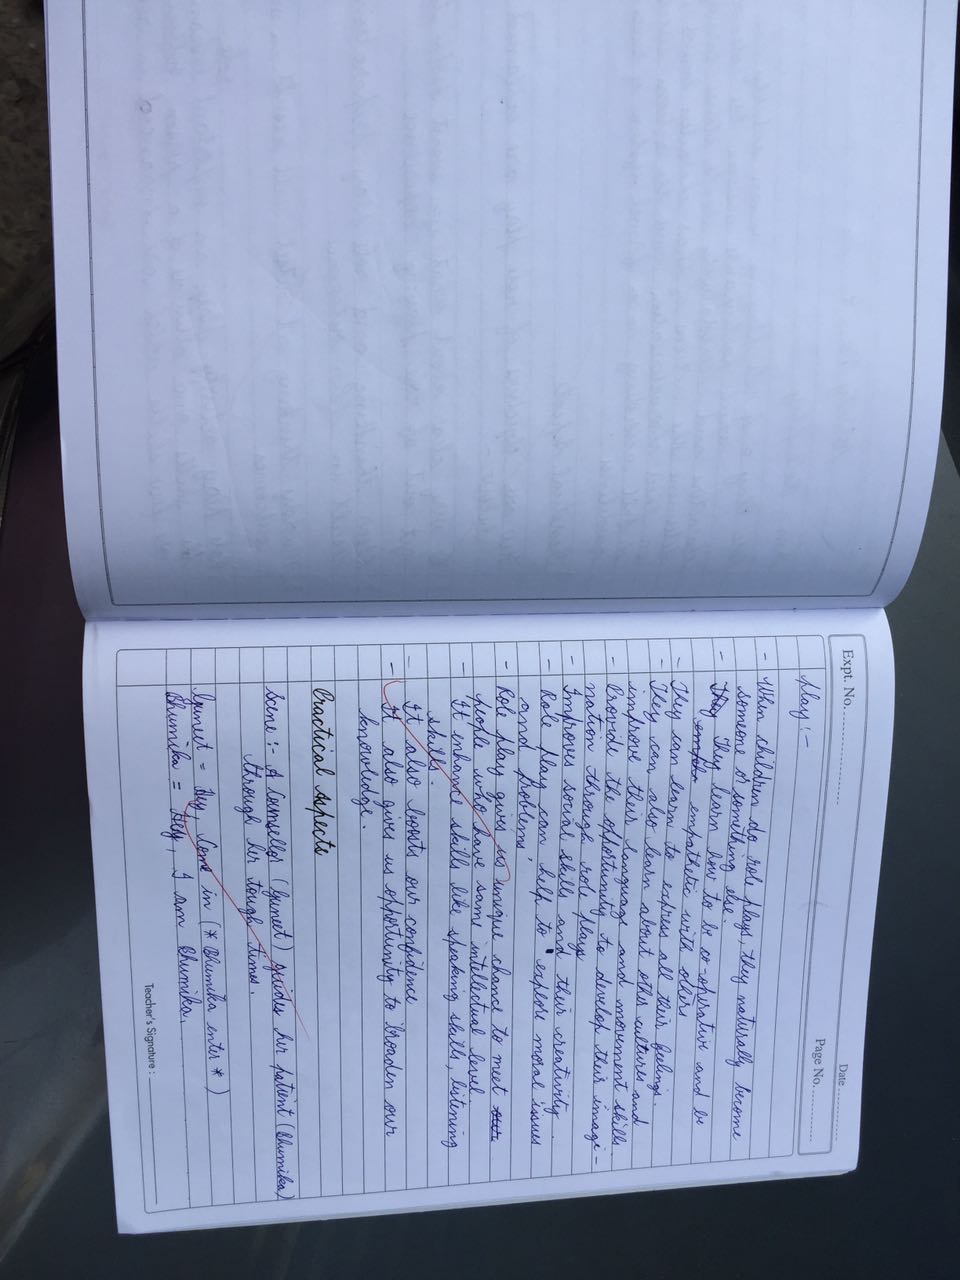 Expt. No.
Date
Page No.
play :-
- When children do role plays, they naturally become
someone or something else.
- They learn how to be co-operative and be
empathetic with others
- They can learn to express all their feelings.
- They can also learn about other cultures and
improve their language and movement skills.
- Provide the opportunity to develop their imagi-
nation through role plays
- Improves social skills and their creativity.
- Role play can help to explore moral issues
and problems.
- Role play gives us unique chance to meet
people who have same intellectual level
- It enhance skills like speaking skills, listening
skills.
- It also boosts our confidence
- It also gives us opportunity to broaden our
knowledge.
Practical Aspects
Scene :- A Counsellor (Guneet) guides her patient (Bhumika)
through her tough times.
Guneet = Hey, Come in (* Bhumika enter *)
Bhumika = Hey, I am Bhumika.
Teacher's Signature :